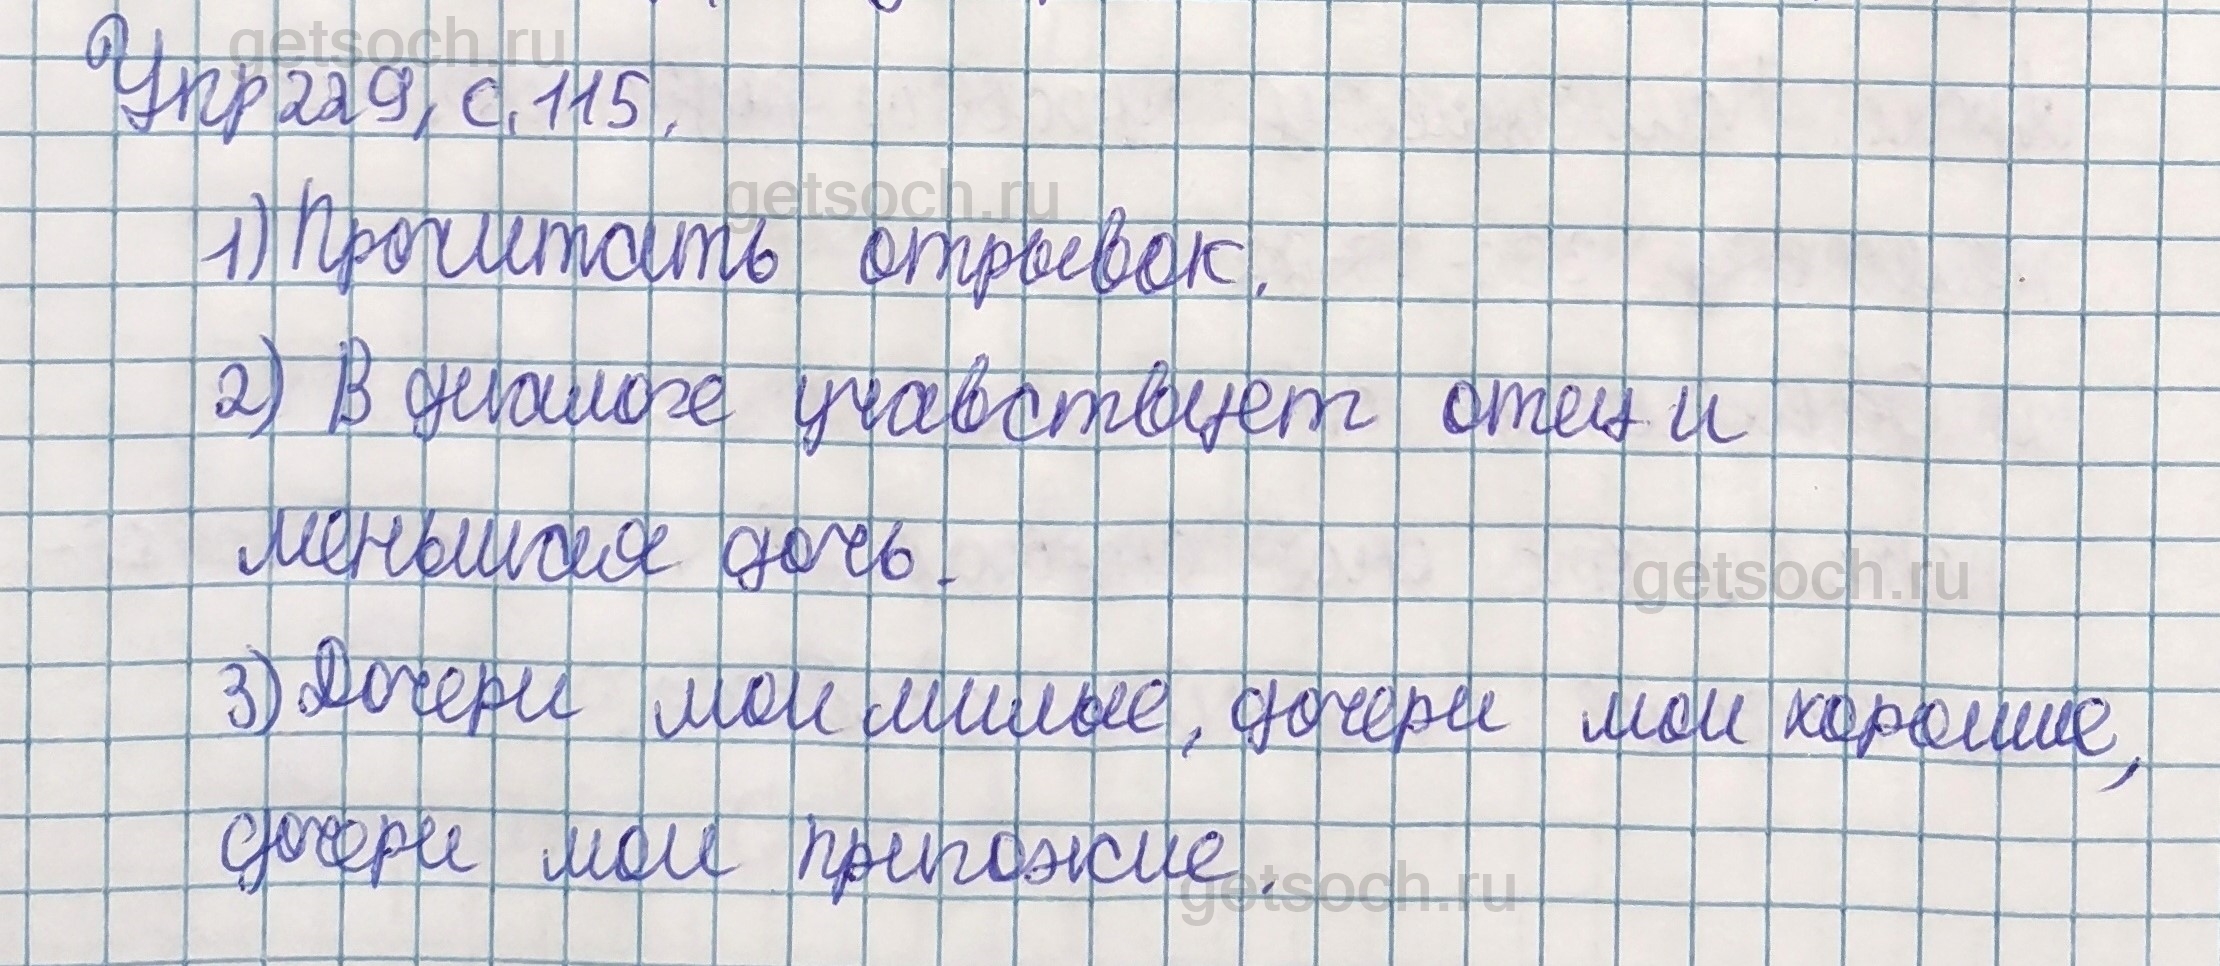 getsoch.ru
Упр 229, с. 115.
getsoch.ru
1) Прочитать отрывок.
2) В диалоге учавствует отец и
меньшая дочь.
getsoch.ru
3) Дочери мои милые, дочери мои хорошие,
дочери мои пригожие.
getsoch.ru